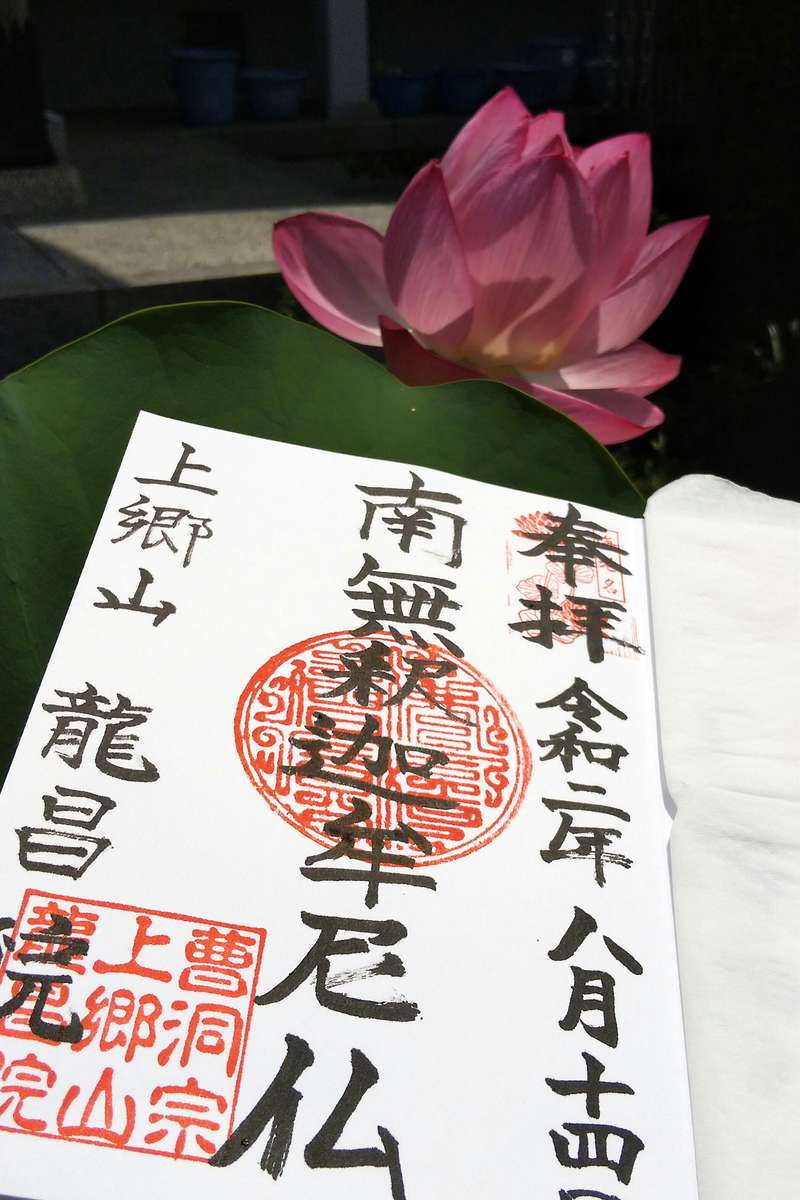 奉拝 令和二年 八月十四日
南無釈迦牟尼仏
上郷山 龍昌院
曹洞宗
上郷山
龍昌院